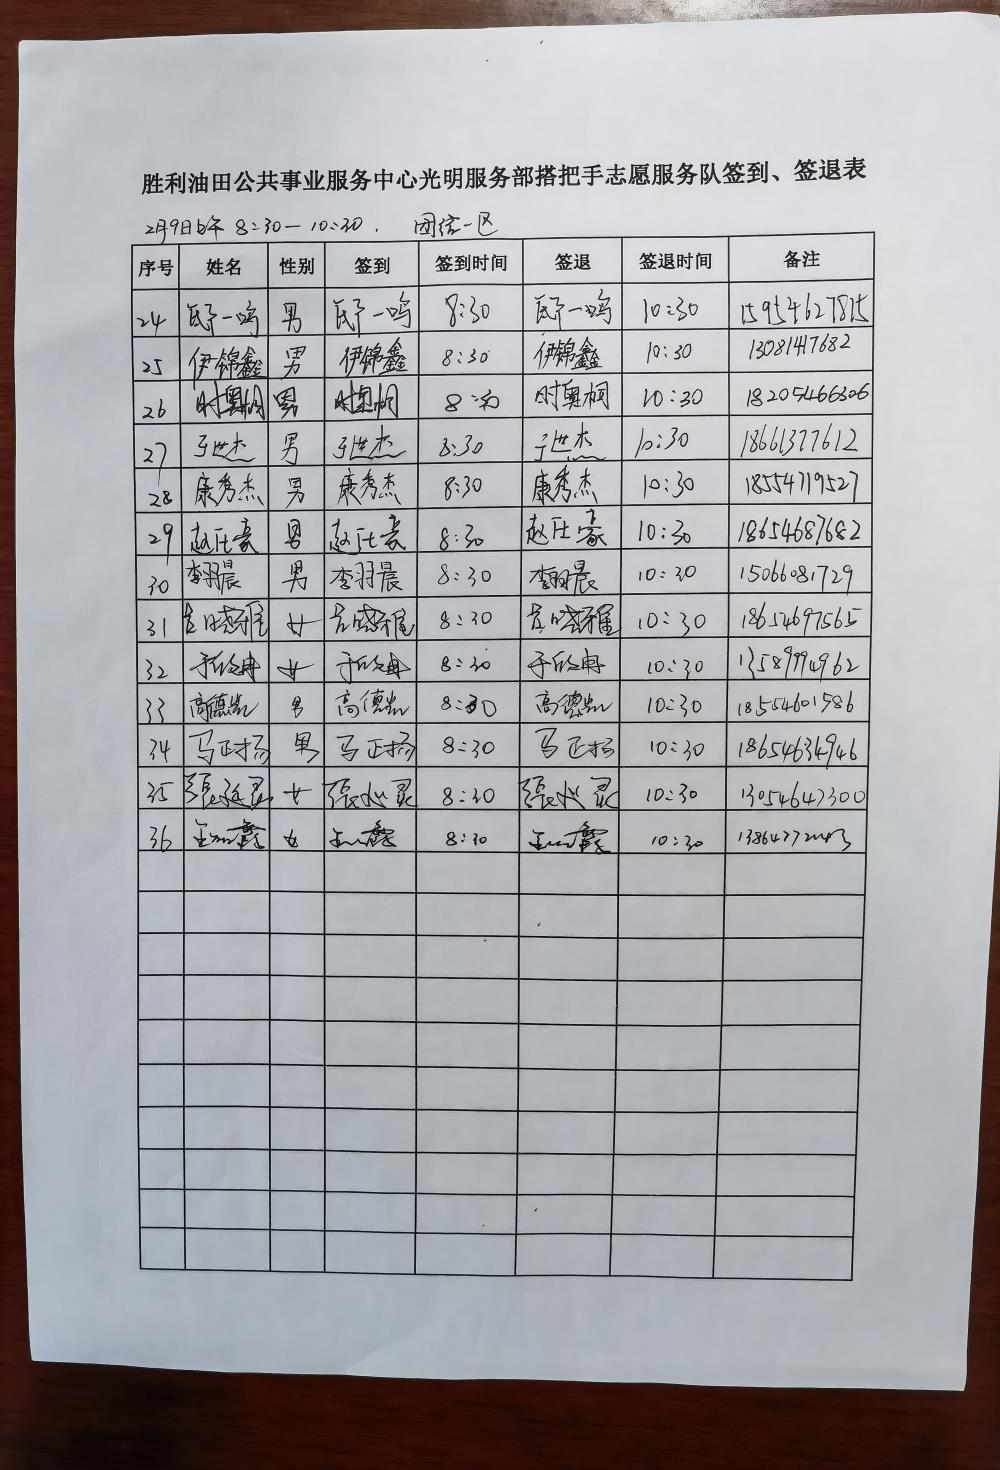 胜利油田公共事业服务中心光明服务部搭把手志愿服务队签到、签退表
2月9日上午 8:30—10:30. 团结一区
序号 姓名 性别 签到 签到时间 签退 签退时间 备注
24 一鸣 男 一鸣 8:30 一鸣 10:30 15954627815
25 伊锦鑫 男 伊锦鑫 8:30 伊锦鑫 10:30 13081417682
26 时奥桐 男 时奥桐 8:30 时奥桐 10:30 18205466306
27 于世杰 男 于世杰 8:30 于世杰 10:30 18661377612
28 康秀杰 男 康秀杰 8:30 康秀杰 10:30 18554719527
29 赵仕豪 男 赵仕豪 8:30 赵仕豪 10:30 18654687682
30 李羽晨 男 李羽晨 8:30 李羽晨 10:30 15066081729
31 女 8:30 10:30 18654697565
32 女 8:30 10:30
33 高德凯 男 高德凯 8:30 高德凯 10:30 18554601586
34 马正扬 男 马正扬 8:30 马正扬 10:30 18654634946
35 女 8:30 10:30 13054647300
36 女 8:30 10:30